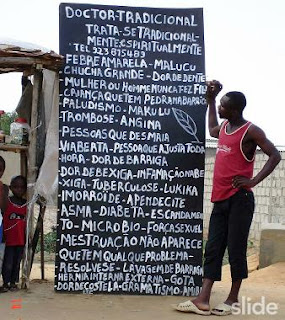 DOCTOR-TRADICIONAL
TRATA-SE TRADICIONAL-
MENTE E SPIRITUALMENTE
TEL 923 875483
FEBRE AMARELA - MALUCU
CHUCHA GRANDE - DOR DE DENTE
MULHER OU HOMEM NUNCA FEZ FILHO
CRIANÇA QUE TEM PEDRA NA BARRIGA
PALUDISMO - MAKULU
TROMBOSE - ANGINA
PESSOAS QUE DESMAIA
VIA BERTA - PESSOA QUE AJUSTA TODA
HORA - DOR DE BARRIGA
DOR DE BEXIGA - INFAMAÇÃO NA BE
XIGA - TUBERCULOSE - LUKIKA
IMORROIDE - APENDECITE
ASMA - DIABETA - ESCANDAMEN
TO - MICROBIO - FORCA SEXUAL
MESTRUAÇÃO NÃO APARECE
QUE TEM QUALQUE PROBLEMA -
RESOLVESE - LAVAGEM DE BARRIGA
HERNIA INTERNA EXTERNA - GOTA
DOR DE COSTELA - GRAMATISMO - AMIBA
slide